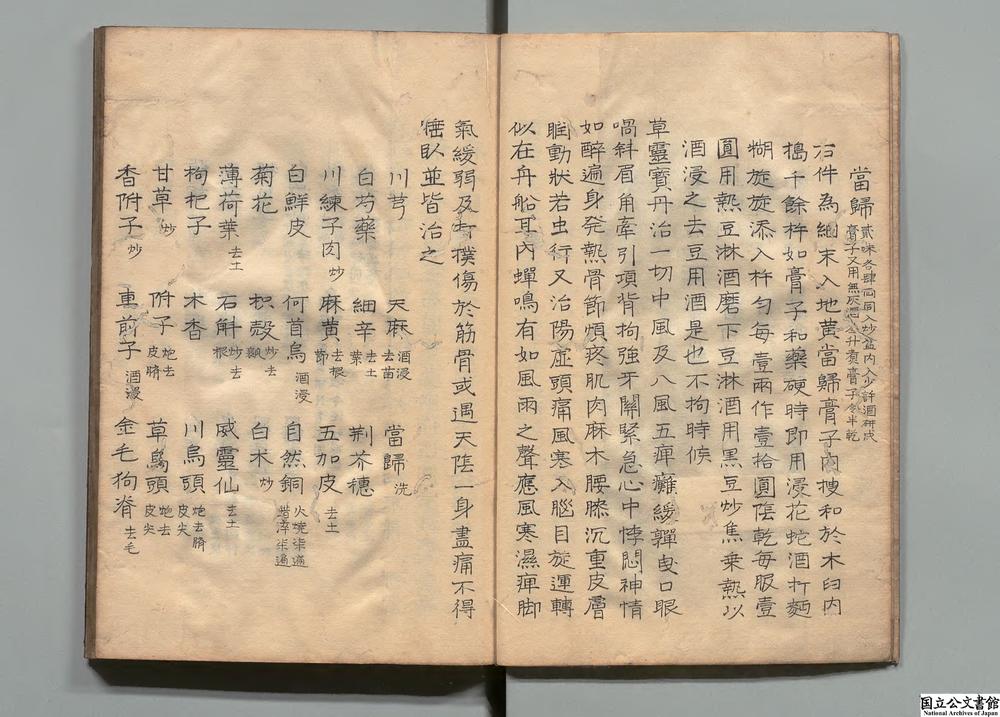 當歸 貳味各肆兩同入沙盆內入少許酒研成
膏子又用無灰酒 升煮膏子令半乾
右件為細末入地黃當歸膏子內搜和於木臼內
搗千餘杵如膏子和藥硬時即用浸花蛇酒打麵
糊旋旋添入杵勻每壹兩作壹拾圓陰乾每服壹
圓用熱豆淋酒磨下豆淋酒用黑豆炒焦乗熱以
酒浸之去豆用酒是也不拘時候
草靈寶丹治一切中風及八風五痺癱緩嚲曳口眼
喎斜眉角牽引項背拘強牙關緊急心中悸悶神情
如醉遍身発熱骨節煩疼肌肉麻木腰膝沉重皮膚
瞤動狀若虫行又治陽虛頭痛風寒入腦目旋運轉
似在舟船耳內蟬鳴有如風雨之聲應風寒濕痺脚
氣緩弱及打撲傷於筋骨或遇天陰一身盡痛不得
睡臥並皆治之
川芎 天麻 酒浸去苗 當歸 洗
白芍藥 細辛 去土葉 荆芥穗
川練子肉 炒 麻黃 去根節 五加皮 去土
白鮮皮 何首烏 酒浸 自然銅 火燒柒遍醋淬柒遍
菊花 枳殼 炒去穰 白朮 炒
薄荷葉 去土 石斛 炒去根 威靈仙 去土
枸杞子 木香 川烏頭 炮去臍皮尖
甘草 炒 附子 炮去皮臍 草烏頭 炮去皮尖
香附子 炒 車前子 酒浸 金毛狗脊 去毛
国立公文書館
National Archives of Japan